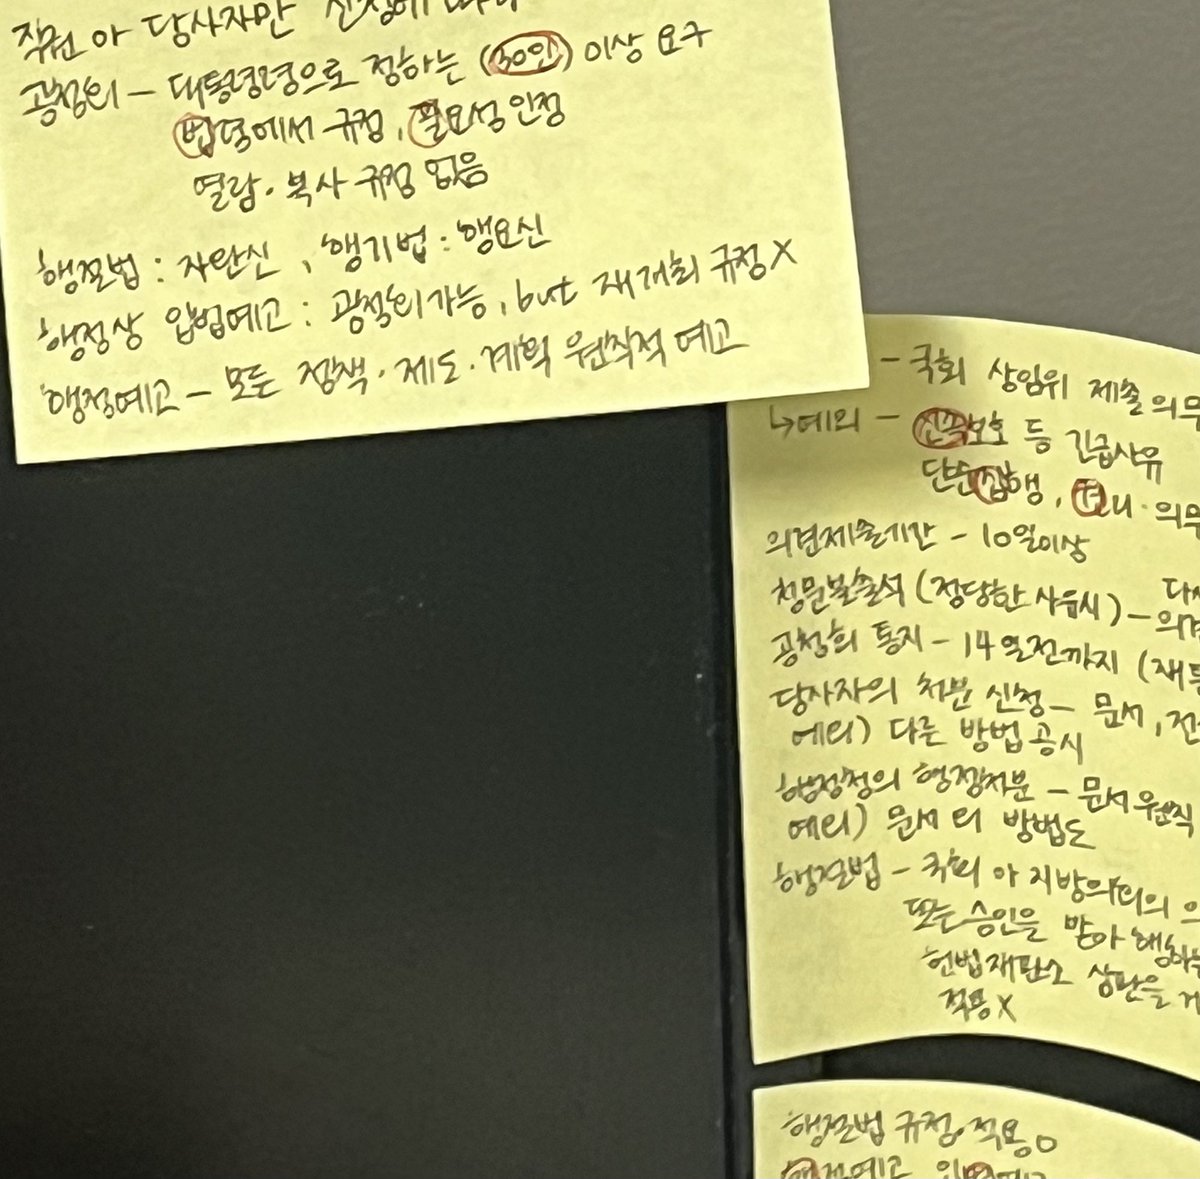 직권 아 당사자만 신청에 따라
공청회 - 대통령령으로 정하는 (30인) 이상 요구
법령에서 규정, 필요성 인정
열람·복사 규정 없음
행절법 : 자란신, 행기법 : 행요신
행정상 입법예고 : 공청회가능, but 재개최 규정X
행정예고 - 모든 정책·제도·계획 원칙적 예고
- 국회 상임위 제출의무
↳예외 - 신속보호 등 긴급사유
단순집행, 권리·의무
의견제출기간 - 10일이상
청문불출석 (정당한 사유시) - 의견
공청회 통지 - 14일전까지 (재통
당사자의 처분 신청 - 문서, 전
예외) 다른 방법 공시
행정청의 행정처분 - 문서원칙
예외) 문서 외 방법도
행절법 - 국회 아 지방의회의 의
또는 승인을 받아 행하는
헌법재판소 심판을 거
적용X
행절법 규정·적용O
행정예고 입법예고